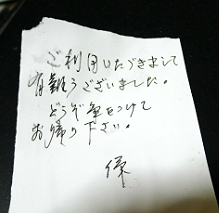 ご利用いただきまして
有難うございました。
どうぞ気をつけて
お帰り下さい。
様